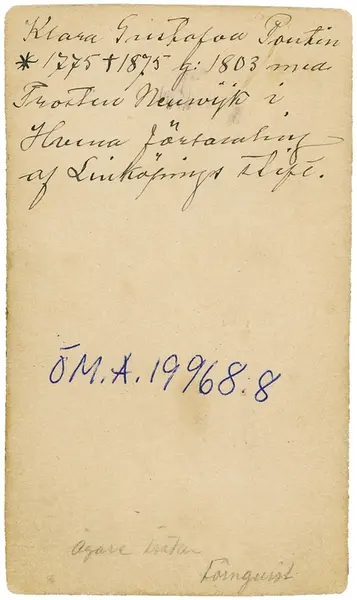 Klara Gustafva Pontin
* 1775 † 1875 g: 1803 med
Prosten Neuwijk i
Hvena församling
af Linköpings stift.
ÖM.A.19968.8
Ägare
Törnquist